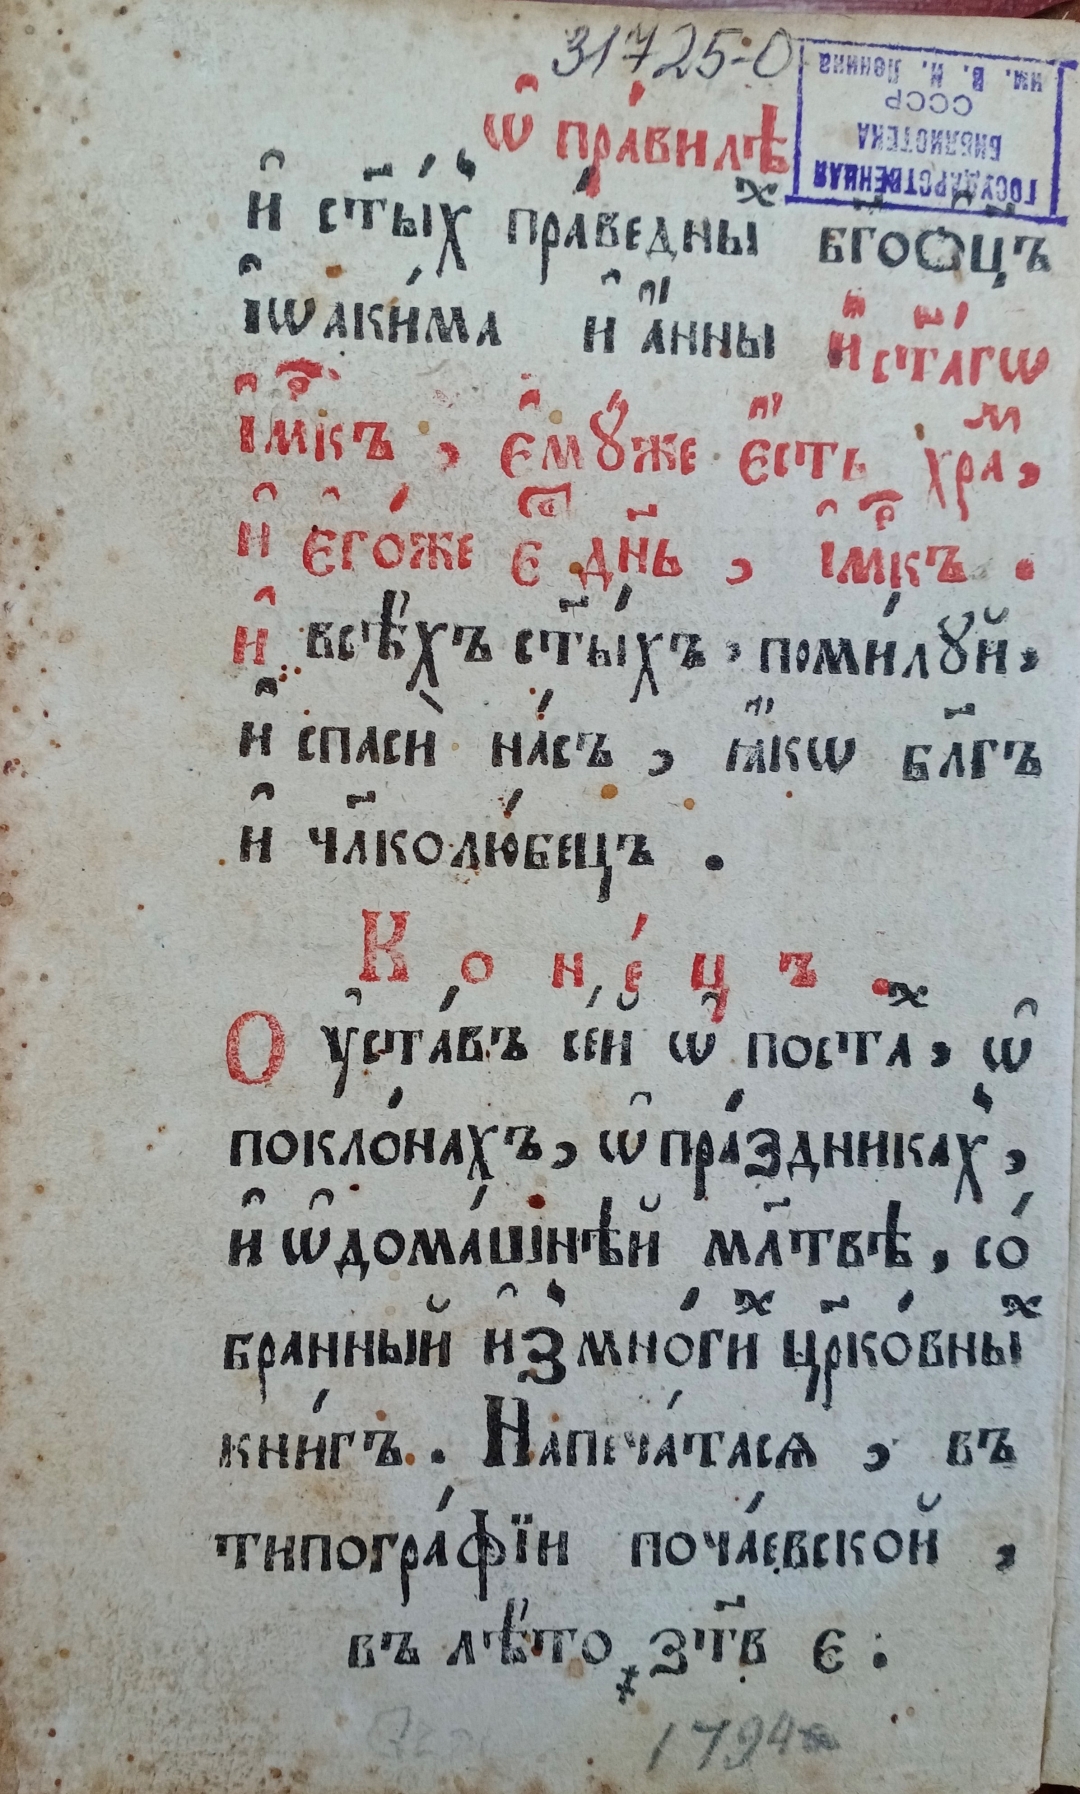 31725-0
ГОСУДАРСТВЕННАЯ
БИБЛИОТЕКА
СССР
им. В. И. Ленина
ѡ҆ пра́вилѣ
и҆ ст҃ы́хъ пра́ведныⷯ бг҃оѻ҆ц҃ъ
і҆ѡаки́ма и҆ а҆́нны и҆ ст҃а́гѡ
і҆мⷬ҇къ , є҆мꙋ́же є҆́сть храⷨ,
и҆ є҆го́же єⷭ҇ дн҃ь , і҆мⷬ҇къ .
и҆ всѣ́хъ ст҃ы́хъ , поми́лꙋй ,
и҆ спасѝ на́съ , ꙗ҆́кѡ бл҃гъ
и҆ чл҃колю́бецъ .
Коне́цъ .
О у҆ста́въ се́й ѡ҆ постаⷯ , ѡ҆
покло́нахъ , ѡ҆ пра́здникахъ ,
и҆ ѡ҆ дома́шнѣй мл҃твѣ , со́
бранный и҆з̾ мно́гиⷯ цр҃ко́вныⷯ
кни́гъ . Напеча́тасѧ , въ
типогра́фїи поча́евской ,
въ лѣ́то ҂зт҃в є :
1794